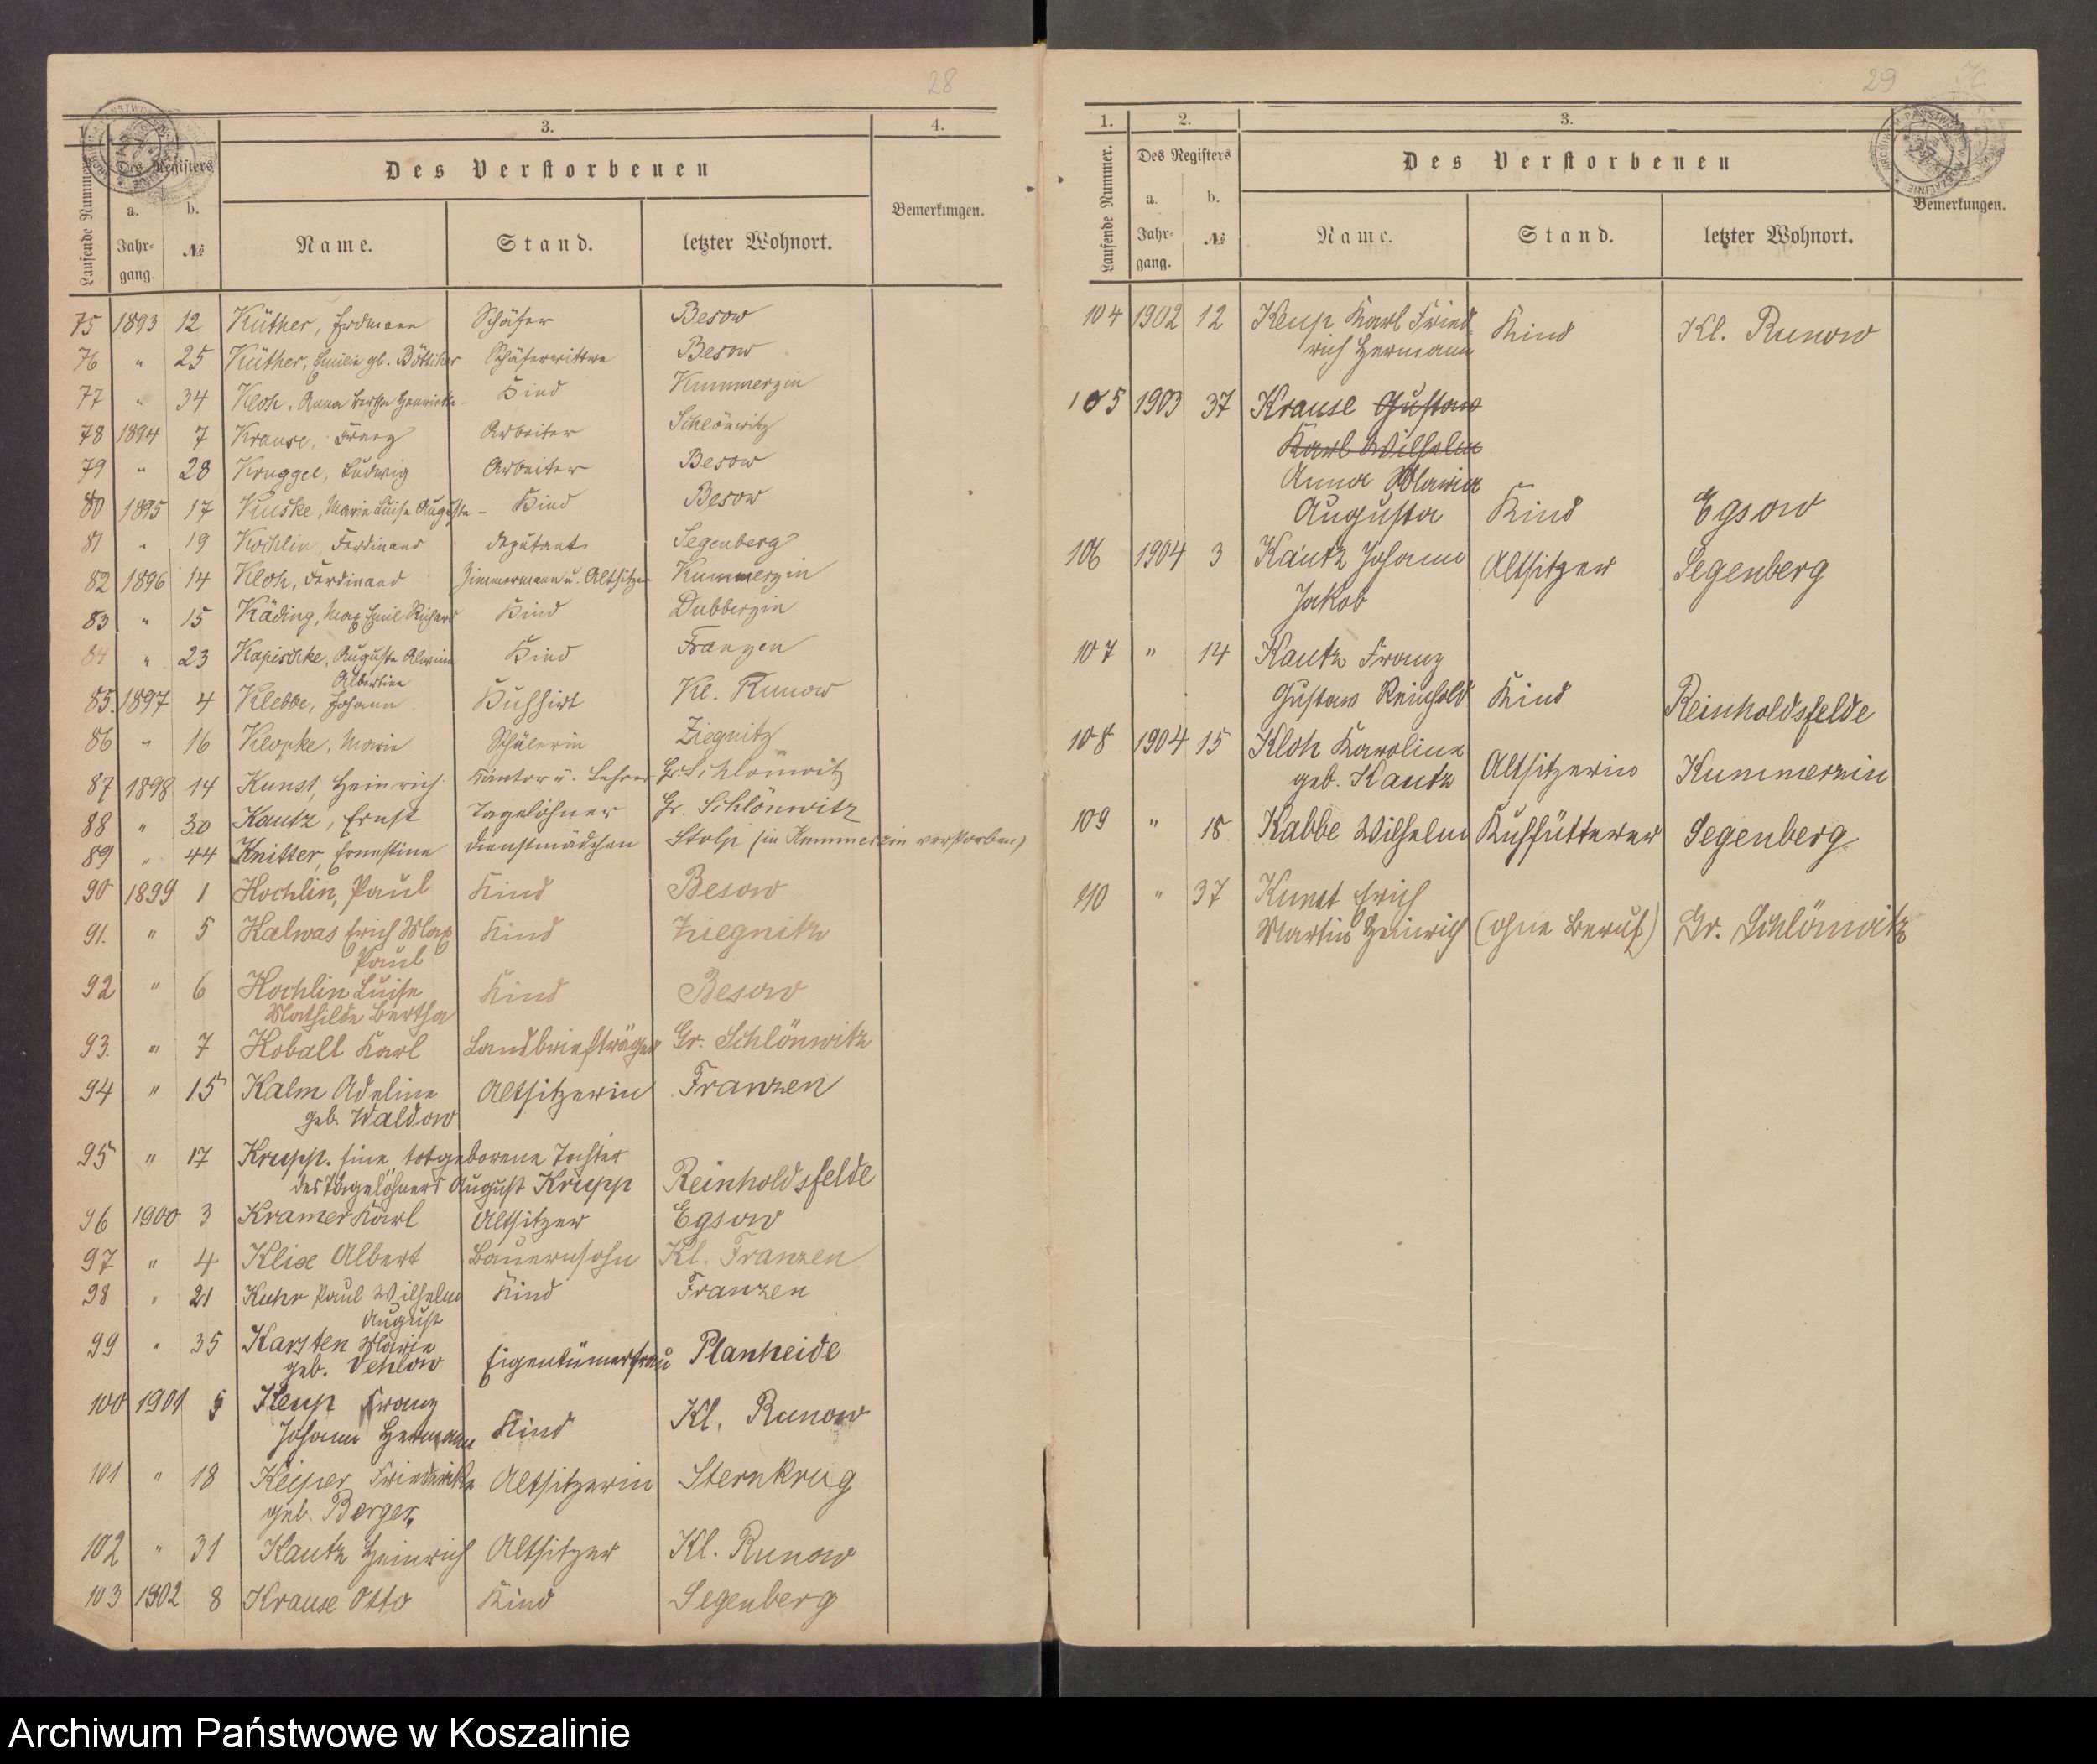 28
1. 3. 4.
Des Registers
Des Verstorbenen
Laufende Nummer.
a. b.
Jahr- №
gang.
Name. Stand. letzter Wohnort.
Bemerkungen.
75 1893 12 Küther, Erdmann Schäfer Besow
76 " 25 Küther, Emilie gb. Böttcher Schäferwittwe Besow
77 " 34 Kloh, Anna Bertha Henriette - Kind Kummerzin
78 1894 7 Krause, Franz Arbeiter Schlönwitz
79 " 28 Kruggel, Ludwig Arbeiter Besow
80 1895 17 Kuske, Marie Luise Auguste - Kind Besow
81 " 19 Kochlin, Ferdinand Deputant Segenberg
82 1896 14 Kloh, Ferdinand Zimmermann u. Altsitzer Kummerzin
83 " 15 Käding, Max Emil Richard Kind Dubberzin
84 " 23 Kapischke, Auguste Alwine Kind Franzen
Albertine
85. 1897 4 Klebbe, Johann Kuhhirt Kl. Runow
86 " 16 Klopke, Marie Schülerin Ziegnitz
87 1898 14 Kunst, Heinrich Kantor u. Lehrer Gr. Schlönwitz
88 " 30 Kautz, Ernst Tagelöhner Gr. Schlönwitz
89 " 44 Knitter, Ernestine Dienstmädchen Stolp (in Kummerzin verstorben)
90 1899 1 Kochlin, Paul Kind Besow
91. " 5 Kalwas Erich Max Kind Ziegnitz
Paul
92 " 6 Kochlin Luise Kind Besow
Mathilde Bertha
93. " 7 Koball Karl Landbriefträger Gr. Schlönwitz
94 " 15 Kalm Adeline Altsitzerin Franzen
geb. Waldow
95 " 17 Krupp. Eine totgeborene Tochter
des Tagelöhners August Krupp Reinholdsfelde
96 1900 3 Kramer Karl Altsitzer Egsow
97 " 4 Klix Albert Bauernsohn Kl. Franzen
98 " 21 Kuhr Paul Wilhelm Kind Franzen
August
99 " 35 Karsten Marie Eigentümerfrau Planheide
geb. Vehlow
100 1901 5 Keup Franz
Johann Hermann Kind Kl. Runow
101 " 18 Keiper Friederike Altsitzerin Sternkrug
geb. Berger
102 " 31 Kautz Heinrich Altsitzer Kl. Runow
103 1902 8 Krause Otto Kind Segenberg
29
1. 2. 3.
Laufende Nummer.
Des Registers
Des Verstorbenen
a. b.
Jahr- №
gang.
Name. Stand. letzter Wohnort.
Bemerkungen.
104 1902 12 Keup Karl Fried- Kind Kl. Runow
rich Hermann
105 1903 37 Krause Gustav
Karl Wilhelm
Anna Maria
Augusta Kind Egsow
106 1904 3 Kautz Johann Altsitzer Segenberg
Jakob
107 " 14 Kautz Franz
Gustav Reinhold Kind Reinholdsfelde
108 1904 15 Kloh Karoline
geb. Kautz Altsitzerin Kummerzin
109 " 18 Kabbe Wilhelm Kuhfütterer Segenberg
110 " 37 Kunst Erich
Martin Heinrich (ohne Beruf) Gr. Schlönwitz
Archiwum Państwowe w Koszalinie